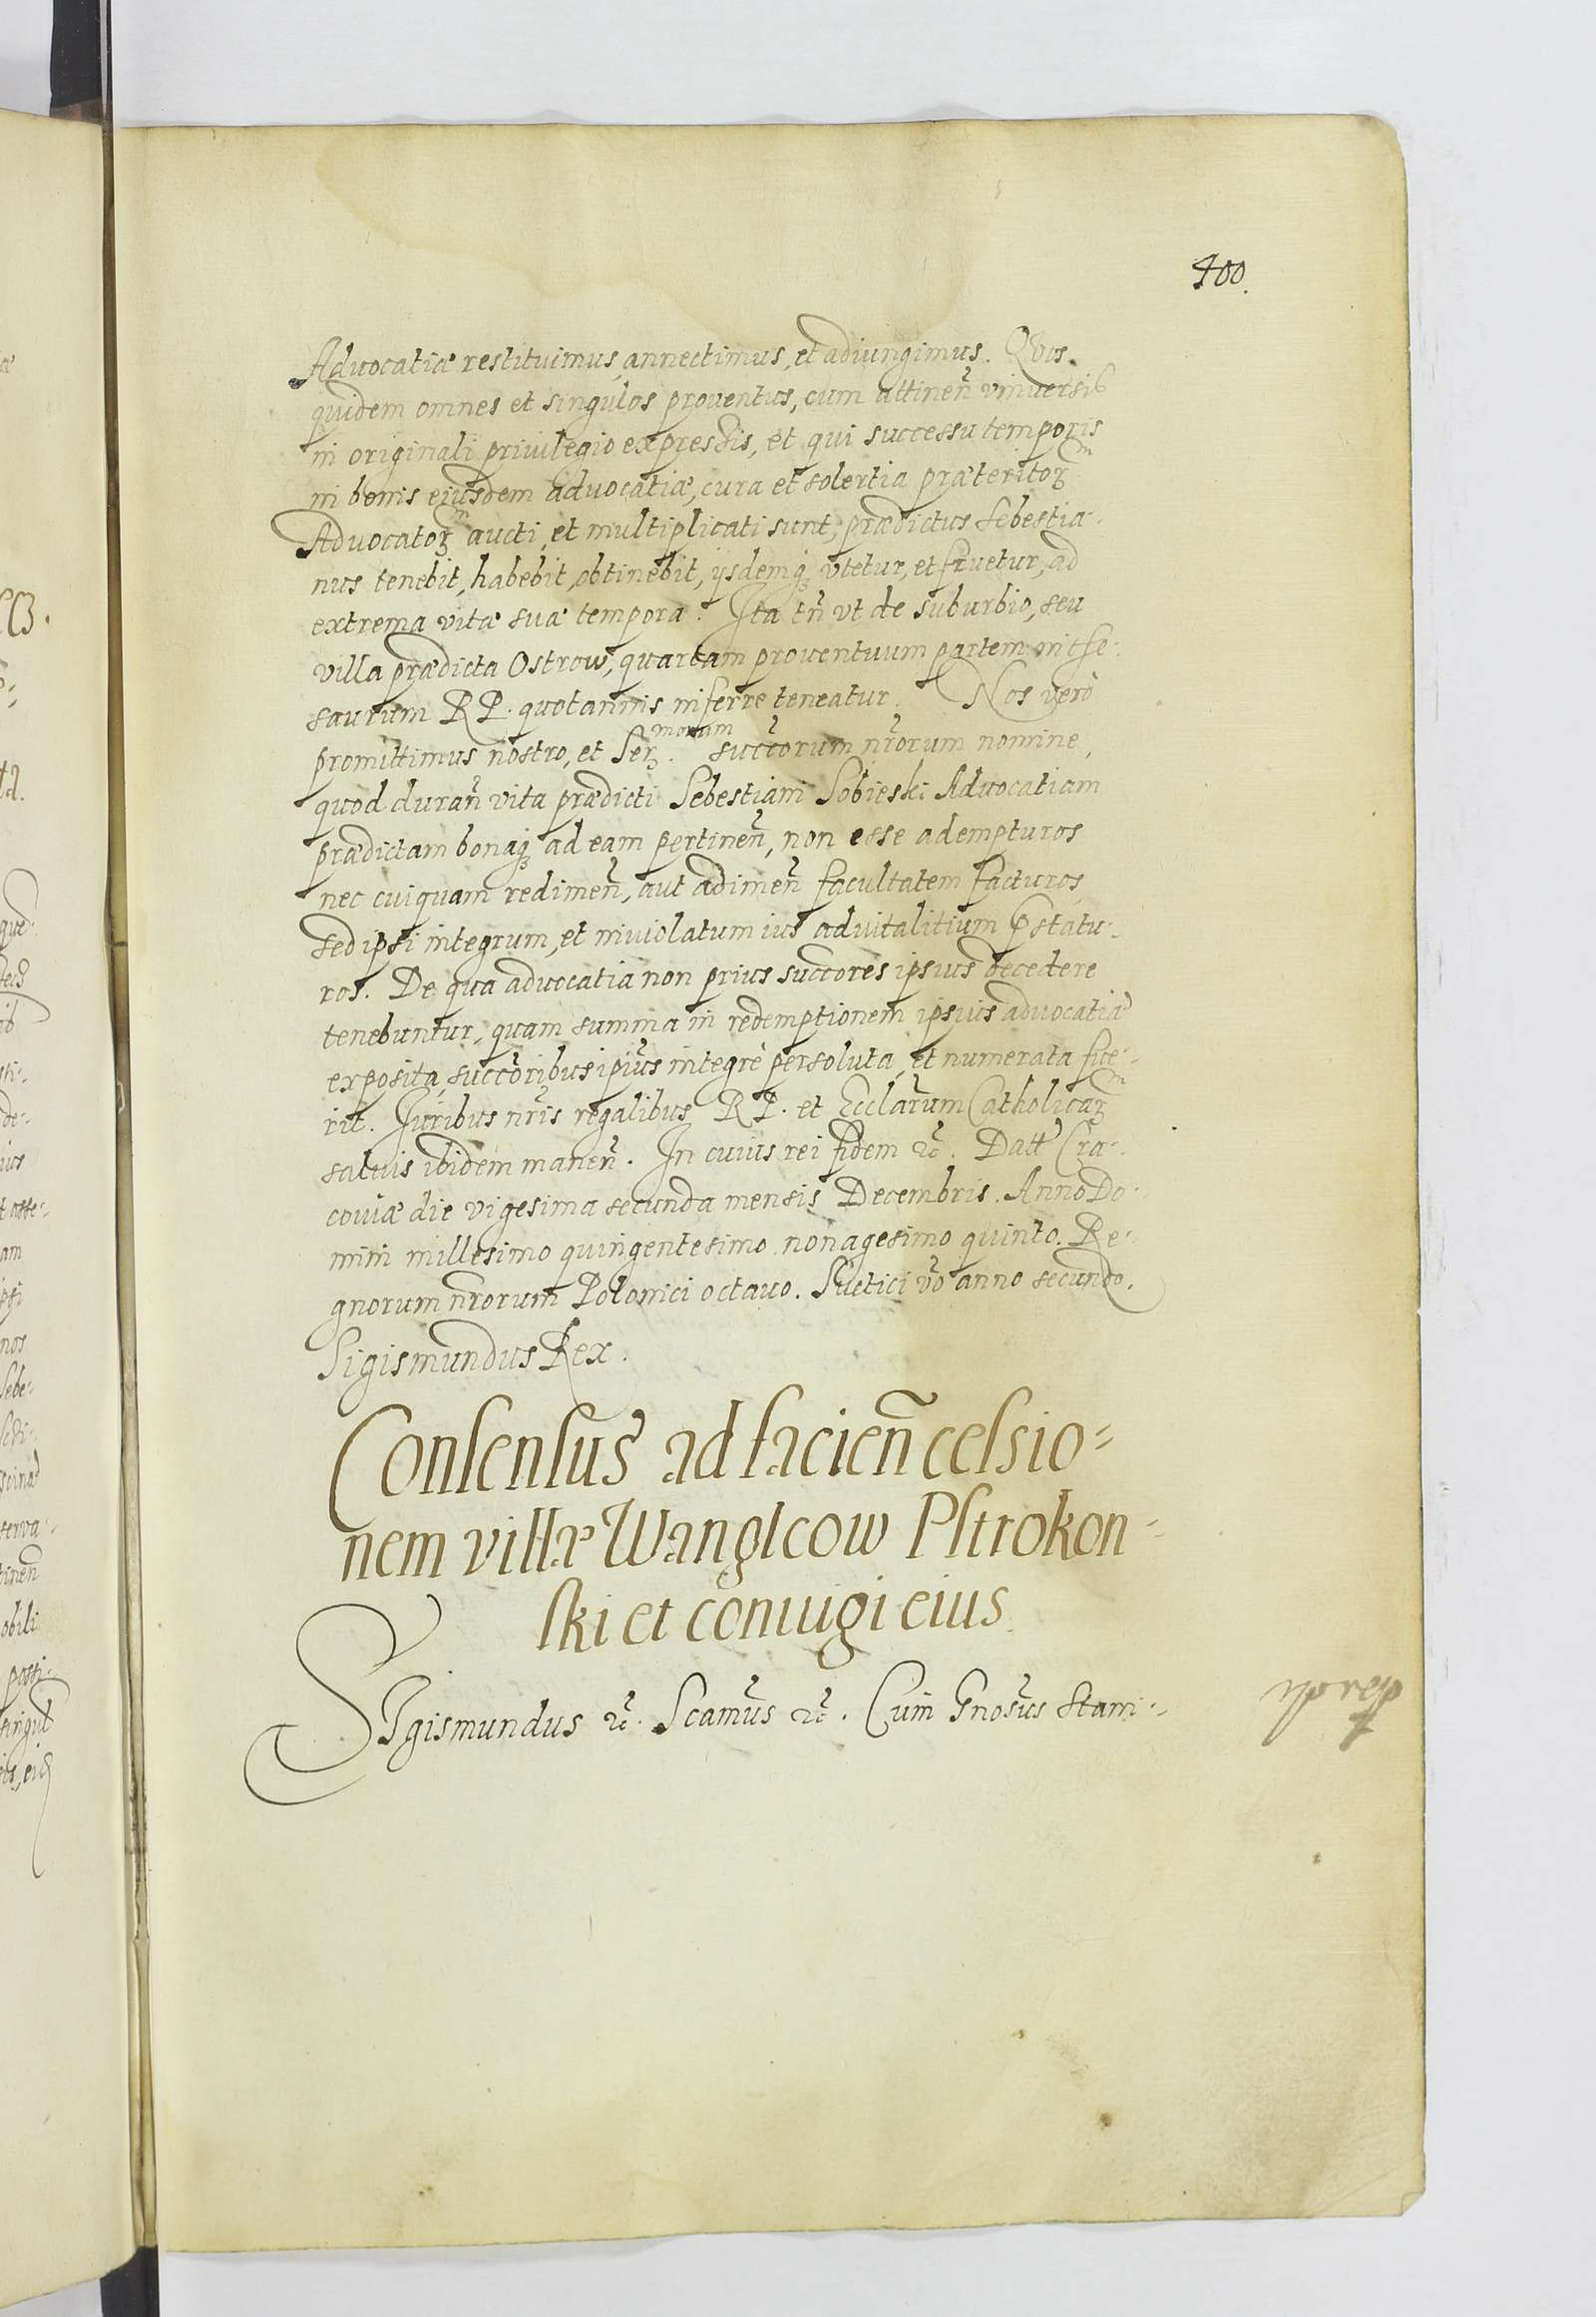 400.
Advocatiæ restituimus, annectimus, et adiungimus. Qvos
quidem omnes et singulos proventus, cum attineñ vniversis
in originali privilegio expressis, et qui successu temporis
in bonis eiusdem advocatiæ, cura et solertia præteritoꝝ
Advocatoꝝ aucti, et multiplicati sunt, prædictus Sebestia-
nus tenebit, habebit, obtinebit, ijsdemqꝫ vtetur, et fruetur, ad
extrema vitæ suæ tempora. Ita tñ vt de suburbio, seu
villa prædicta Ostrow, quartam proventuum partem in the-
saurum R P. quotannis inferre teneatur. Nos verò
promittimus nostro, et Serꝫ.morum succ̃orum nr̃orum nomine,
quod durañ vita prædicti Sebestiani Sobieski Advocatiam
prædictam bonaqꝫ ad eam pertineñ, non esse adempturos
nec cuiquam redimeñ, aut adimeñ facultatem facturos,
sed ipsi integrum, et inviolatum ius advitalitium ꝓstatu-
ros. De qua advocatia non prius succ̃ores ipsius decedere
tenebuntur, quam summa in redemptionem ipsius advocatiæ
exposita, succ̃oribus ip̃ius integrè persoluta, et numerata fue-
rit. Iuribus nr̃is regalibus R P. et Eccl̃arum Catholicaꝝ
salvis ibidem maneñ. In cuius rei fidem ꝛc̃. Datt Cra-
coviæ die vigesima secunda mensis Decembris. Anno Do-
mini millesimo quingentesimo nonagesimo quinto. Re-
gnorum nr̃orum Polonici octavo. Suetici vo anno secundo.
Sigismundus Rex.
Consensus ad facieñ cessio-
nem villæ Wanglcow Pstrokon-
ski et coniugi eius
SIgismundus ꝛc̃. Scamus ꝛc̃. Cum Gnosus Stani-